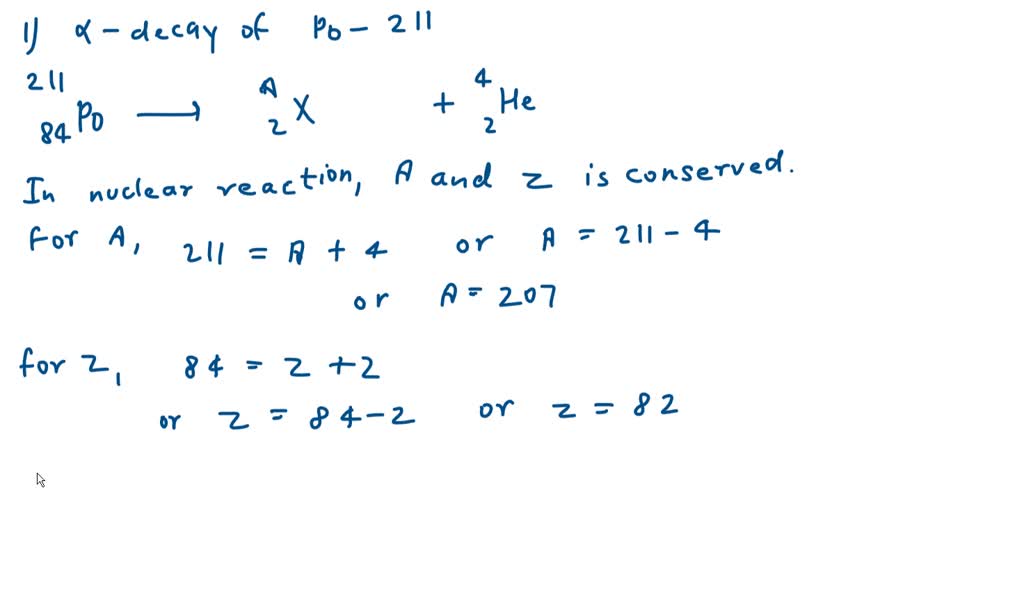 1) α-decay of Po-211
²¹¹₈₄Po ⟶ ᴬ₂X + ⁴₂He
In nuclear reaction, A and z is conserved.
for A, 211 = A + 4 or A = 211 - 4
or A = 207
for z, 84 = z + 2
or z = 84 - 2 or z = 82